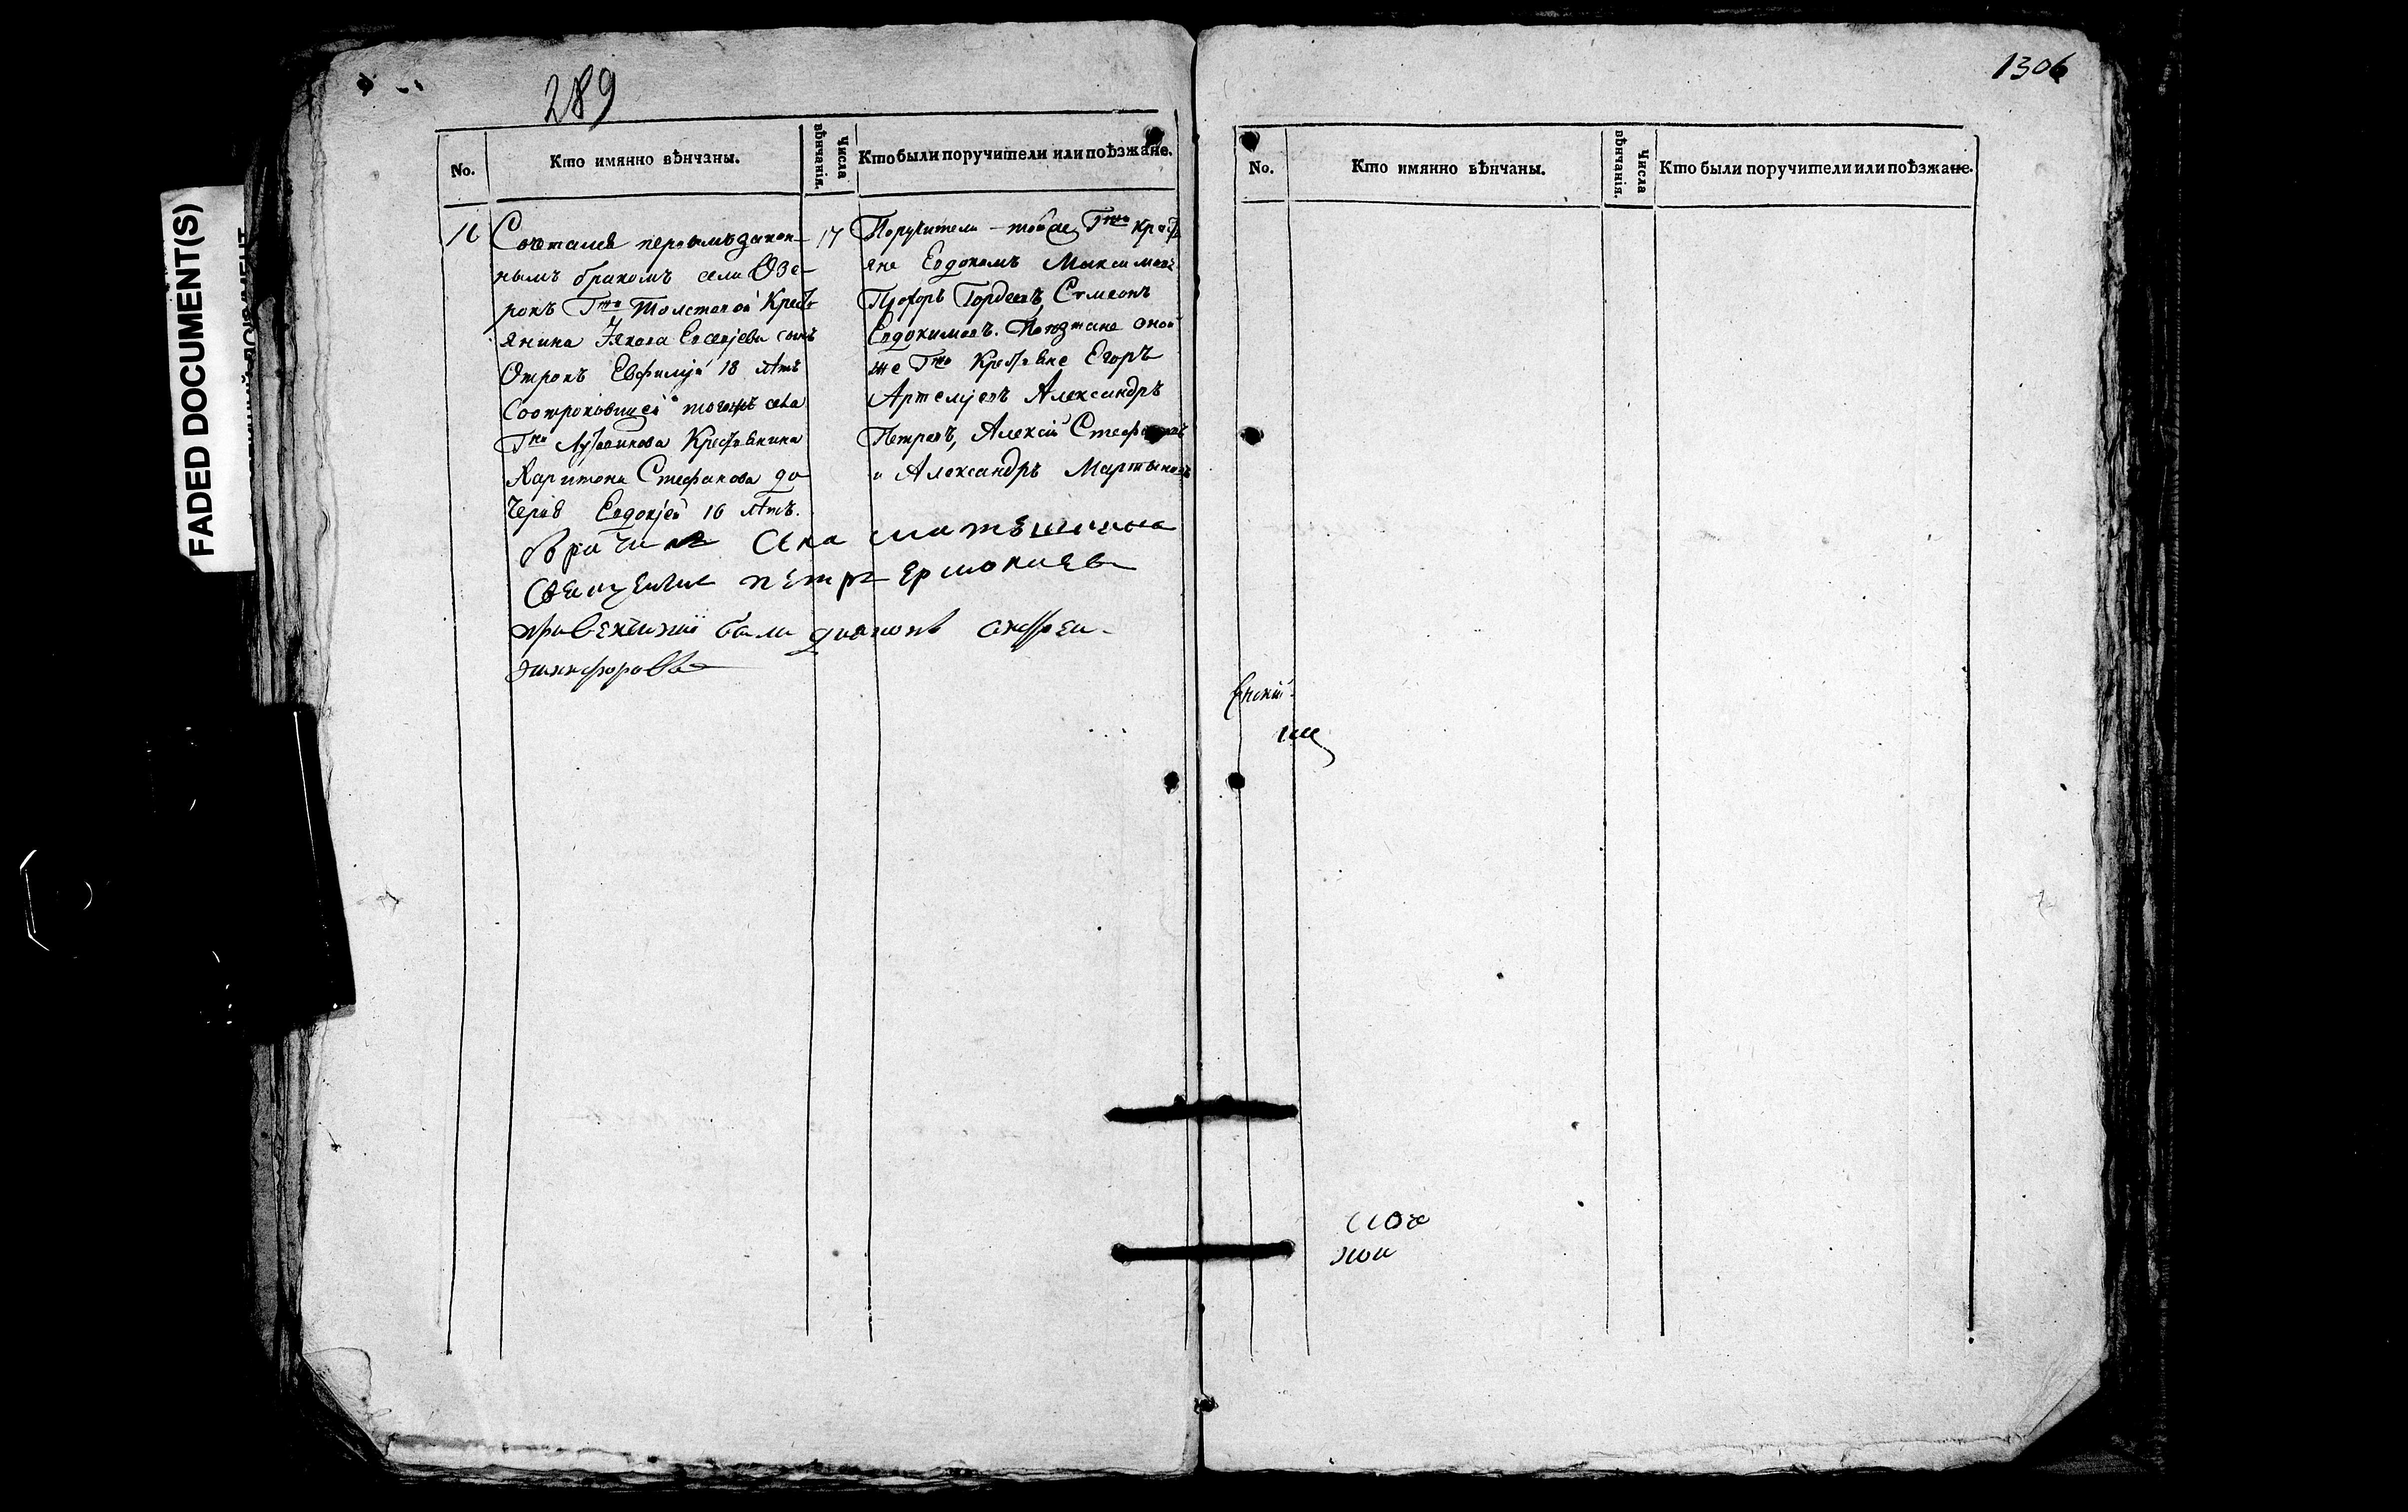 289
No.
Кто имянно вѣнчаны.
Числа вѣнчанія.
Кто были поручители или поѣзжане.
16
Сочтался первымъ закон-
нымъ бракомъ села Озе-
рокъ Гна Толстаго Кресть
янина Іякова Евсевјева сынъ
Отрокъ Евфимјй 18 лѣтъ
Соотроковицей тогожъ села
Гна Кресtьянина
Харитона Стефанова до
черью Евдокјей 16 лѣтъ.
17
Поручители тойже Гжи Кресть
яне Евдокимъ Максимовъ
Прохоръ Гордеевъ, Симеонъ
Евдокимовъ. Поезжане оной
же Гжи Крестьяне Егоръ
Артемјевъ Александръ
Петровъ, Алексій Стефановъ
и Александръ Мартыновъ
бракъ
священникъ петръ ермолаевъ
привенчанїи были дьяконъ андреи
никифоровъ
1306
No.
Кто имянно вѣнчаны.
Числа вѣнчанія.
Кто были поручители или поѣзжане.